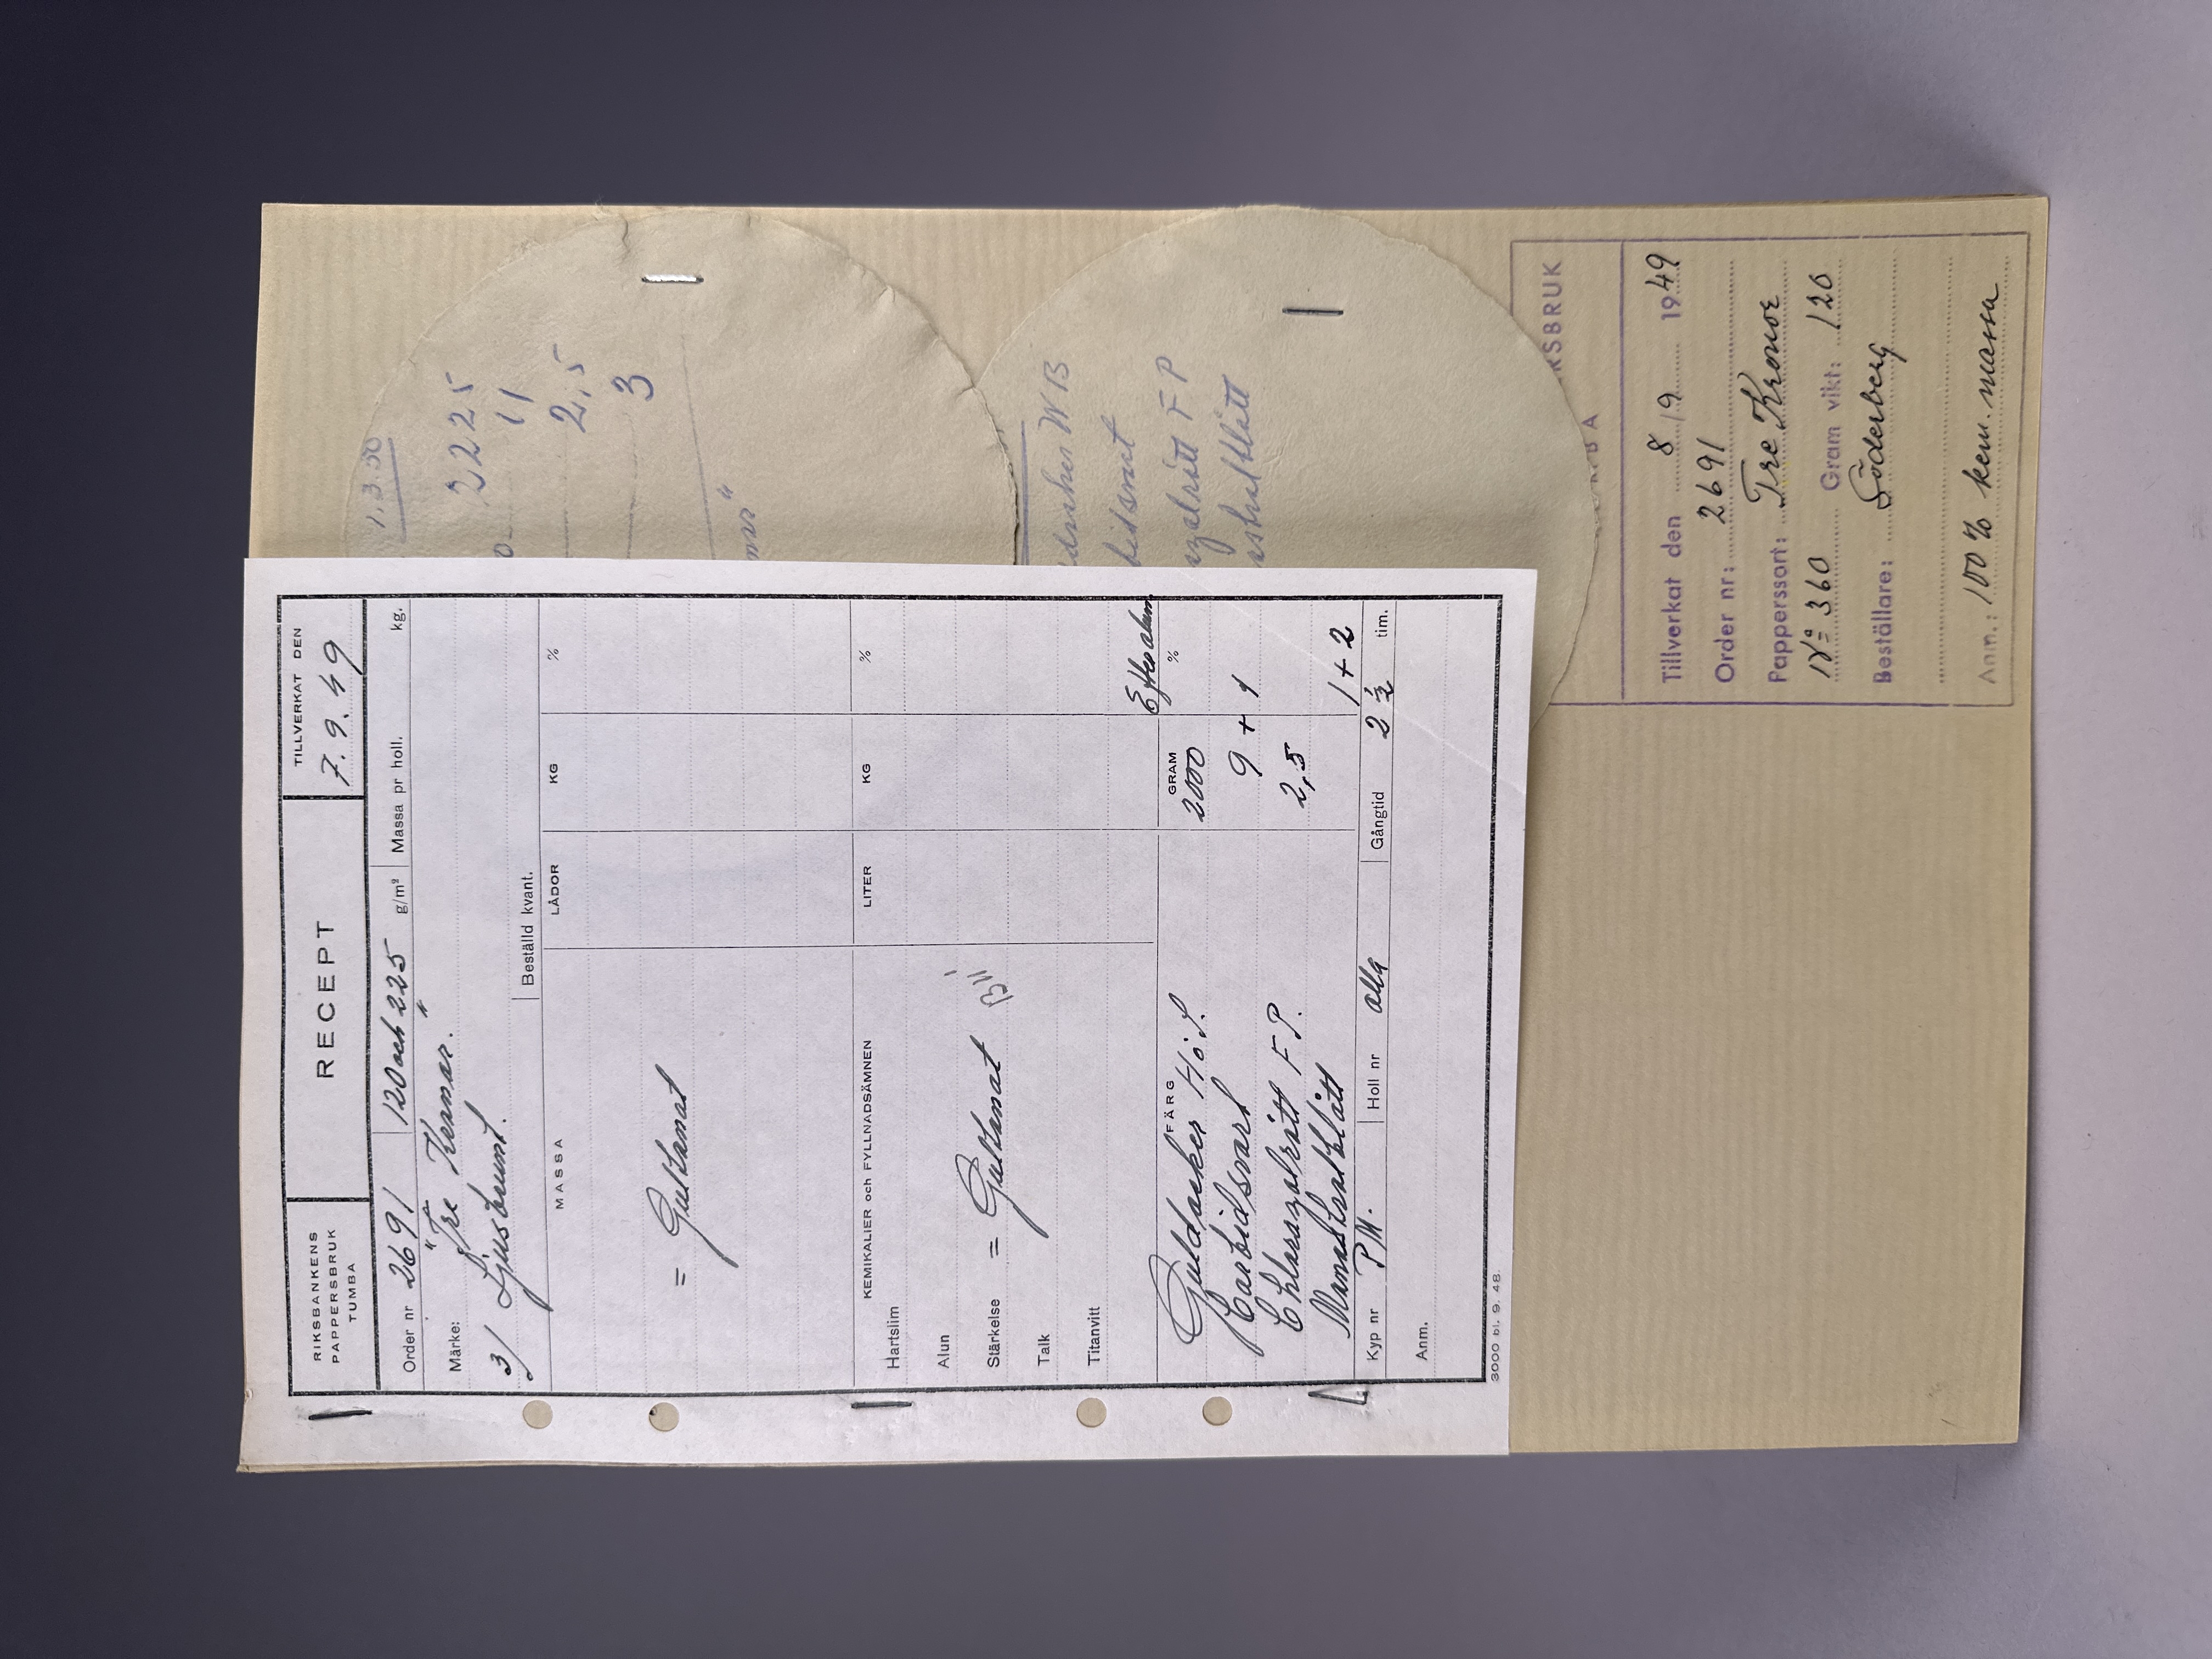 RIKSBANKENS
PAPPERSBRUK
TUMBA
RECEPT
TILLVERKAT DEN
7. 9. 49
Order nr 2691 120 och 225 g/m² Massa pr holl. kg.
Märke: "Tre Kronor."
3/ Ljusbrunt.
Beställd kvant.
MASSA LÅDOR KG %
= Gultonat
KEMIKALIER och FYLLNADSÄMNEN LITER KG %
Hartslim
Alun
Stärkelse = Gultonat
Talk
Titanvitt
FÄRG GRAM %
Guldocker 2000
Karbidsvart 9 + 1
Chlorazolrött F.P. 2,5
1 + 2
Kyp nr P.M. Holl nr alla Gångtid 2 ½ tim.
Anm.
3000 bl. 9. 48.
1.3.50
2225
11
2,5
3
WB
F P
KSBRUK
BA
Tillverkat den 8/9 1949
Order nr: 2691
Papperssort: Tre Kronor
Nº 360 Gram vikt: 120
Beställare: Söderberg
Anm.: 100 % kem. massa